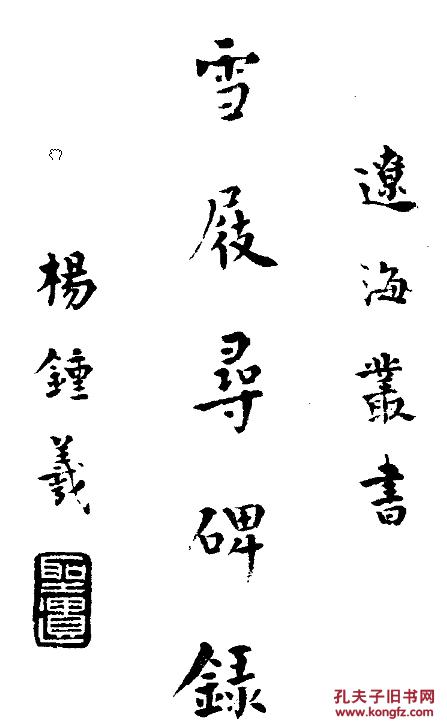 遼海叢書
雪屐尋碑錄
楊鍾羲
聖遺
孔夫子旧书网
www.kongfz.com